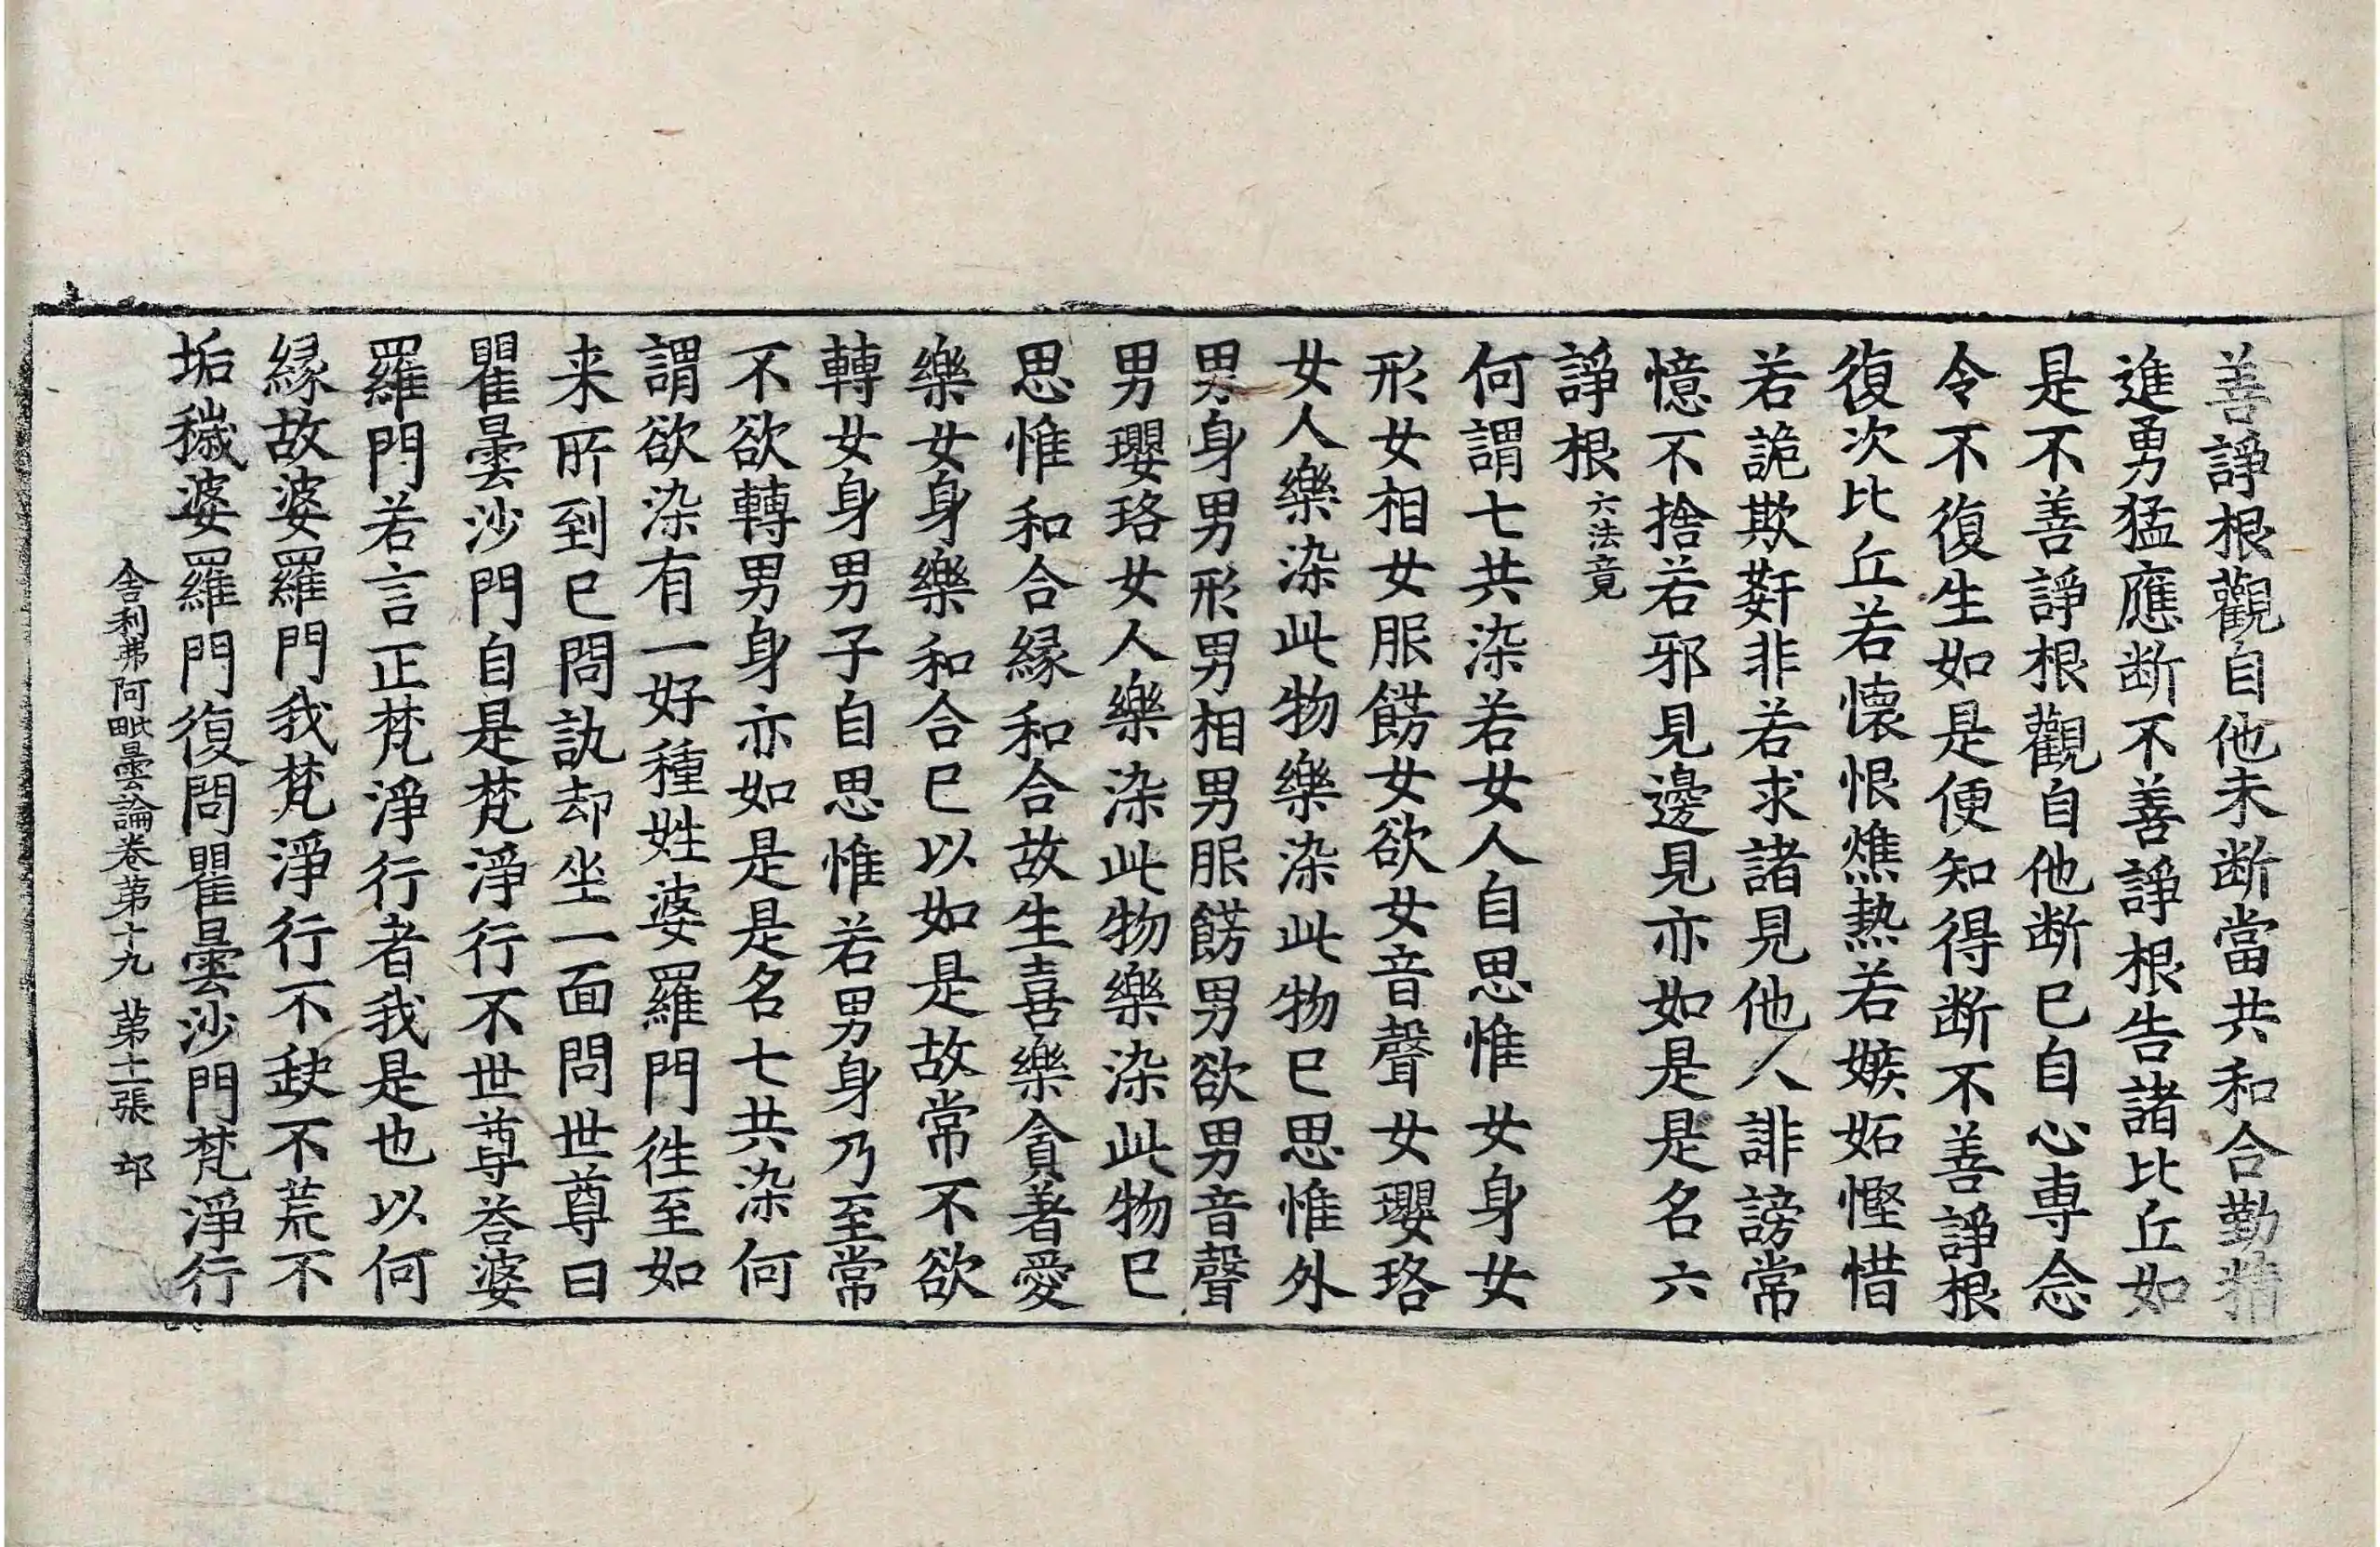 善諍根觀自他未断當共和合勤精
進勇猛應断不善諍根告諸比丘如
是不善諍根觀自他断已自心専念
令不復生如是便知得断不善諍根
復次比丘若懷恨燋熱若嫉妬慳惜
若詭欺姧非若求諸見他人誹謗常
憶不捨若邪見邊見亦如是是名六
諍根六法竟
何謂七共染若女人自思惟女身女
形女相女服餝女欲女音聲女瓔珞
女人樂染此物樂染此物已思惟外
男身男形男相男服餝男欲男音聲
男瓔珞女人樂染此物樂染此物已
思惟和合縁和合故生喜樂貪著愛
樂女身樂和合已以如是故常不欲
轉女身男子自思惟若男身乃至常
不欲轉男身亦如是是名七共染何
謂欲染有一好種姓婆羅門徃至如
来所到已問訊却坐一面問世尊曰
瞿曇沙門自是梵淨行不世尊荅婆
羅門若言正梵淨行者我是也以何
縁故婆羅門我梵淨行不缺不荒不
垢穢婆羅門復問瞿曇沙門梵淨行
舎利弗阿毗曇論卷第十九 第十二張 邙